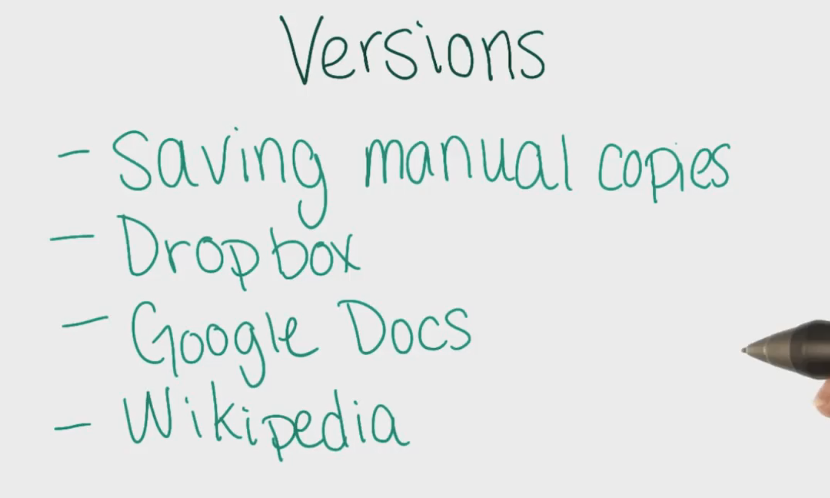 Versions
- Saving manual copies
- Dropbox
- Google Docs
- Wikipedia